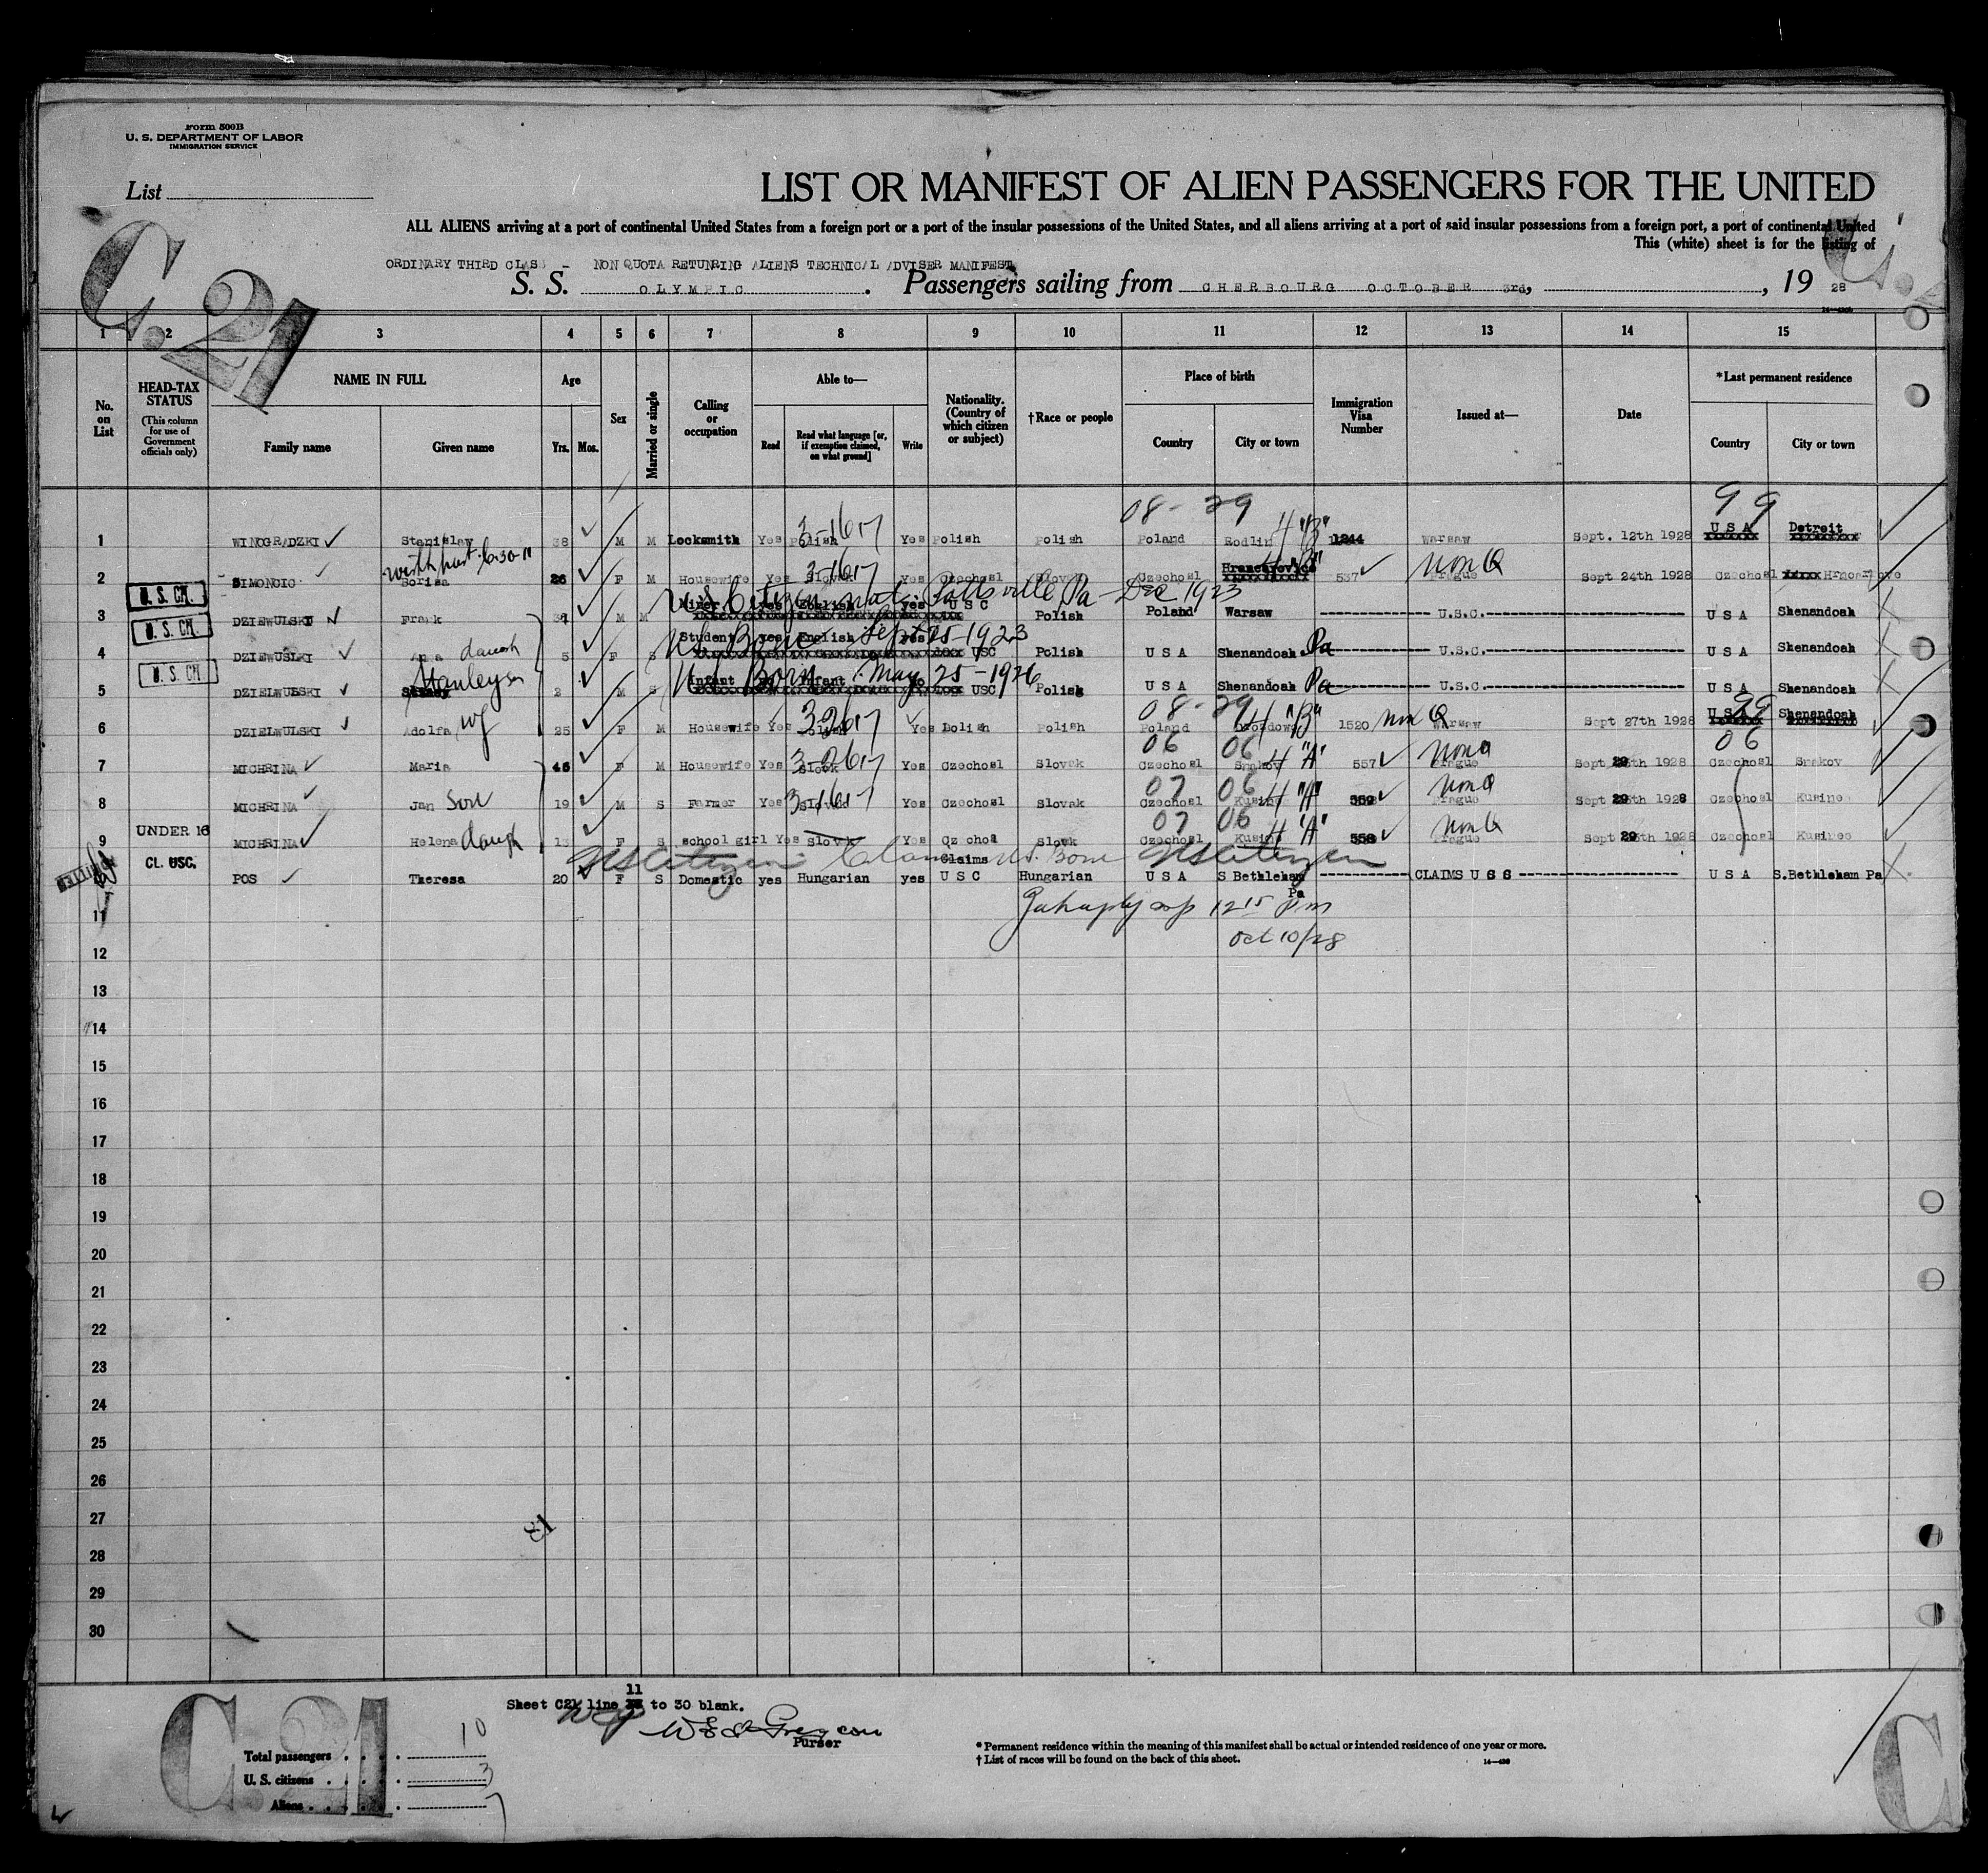 Form 500B
U. S. DEPARTMENT OF LABOR
IMMIGRATION SERVICE
List
LIST OR MANIFEST OF ALIEN PASSENGERS FOR THE UNITED
ALL ALIENS arriving at a port of continental United States from a foreign port or a port of the insular possessions of the United States, and all aliens arriving at a port of said insular possessions from a foreign port, a port of continental United
This (white) sheet is for the listing of
C. 21
ORDINARY THIRD CLASS - NON QUOTA RETUNRING ALIENS TECHNICAL ADVISER MANIFEST
S. S. OLYMPIC. Passengers sailing from CHERBOURG OCTOBER 3rd, , 19 28
1 2 3 4 5 6 7 8 9 10 11 12 13 14 15
No. on List
HEAD-TAX STATUS (This column for use of Government officials only)
NAME IN FULL Family name Given name
Age Yrs. Mos.
Sex
Married or single
Calling or occupation
Able to— Read Read what language [or, if exemption claimed, on what ground] Write
Nationality. (Country of which citizen or subject)
†Race or people
Place of birth Country City or town
Immigration Visa Number
Issued at—
Date
*Last permanent residence Country City or town
08-29 99
1 WINOGRADZKI Stanislaw 38 M M Locksmith Yes Polish 3-1617 Yes Polish Polish Poland Rodlin 4 "B" 1244 Warsaw Sept. 12th 1928 U S A Detroit
2 SIMONCIC 26 F M Housewife Yes Slovak 3-1617 Yes Czechosl Slovak Czechosl 537 Non Q Prague Sept 24th 1928 Czechosl
U. S. CTZ.
U S Citizen nat. Pottsville Pa - Dec 1923
3 DZIEWULSKI Frank M M Miner yes English yes U S C Polish Poland Warsaw U.S.C. U S A Shenandoah
U. S. CTZ.
US Born Sept 25-1923
4 DZIEWUSLKI daugh 5 F S Student yes English yes USC Polish U S A Shenandoah Pa U.S.C. U S A Shenandoah
U. S. CTZ.
US Born May 25-1926
5 DZIELWUSSKI Stanley 2 M S Infant no Infant no USC Polish U S A Shenandoah Pa U.S.C. U S A Shenandoah
08-29 99
6 DZIELWULSKI Adolfa wf 25 F M Housewife Yes Polish Yes Polish Polish Poland 4 "B" 1520 Non Q Warsaw Sept 27th 1928 U S A Shenandoah
06 06 06
7 MICHRINA Maria 45 F M Housewife Yes Slovak Yes Czechosl Slovak Czechosl Smakov 4 "A" 557 Non Q Prague Sept 29th 1928 Czechosl Smakov
07 06
8 MICHRINA Jan Son 19 M S Farmer Yes 3-1617 Yes Czechosl Slovak Czechosl Kusino 4 "A" 559 Non Q Prague Sept 29th 1928 Czechosl Kusinee
07 06
UNDER 16
9 MICHRINA Helena daugh 13 F S school girl Yes Slovak Yes Cz chosl Slovak Czechosl Kusino 4 "A" 558 Non Q Prague Sept 29th 1928 Czechosl Kusinee
CL. USC.
US Citizen Claims US. Born US Citizen
Claims
10 POS Theresa 20 F S Domestic yes Hungarian yes U S C Hungarian U S A S Bethleham Pa CLAIMS U S S U S A S.Bethleham Pa
12 15 Pm
Oct 10/28
11
12
13
14
15
16
17
18
19
20
21
22
23
24
25
26
27
28
29
30
81
11
Sheet C21 line to 30 blank.
Purser
C. 21
Total passengers 10
U. S. citizens 3
Aliens 7
* Permanent residence within the meaning of this manifest shall be actual or intended residence of one year or more.
† List of races will be found on the back of this sheet.
C